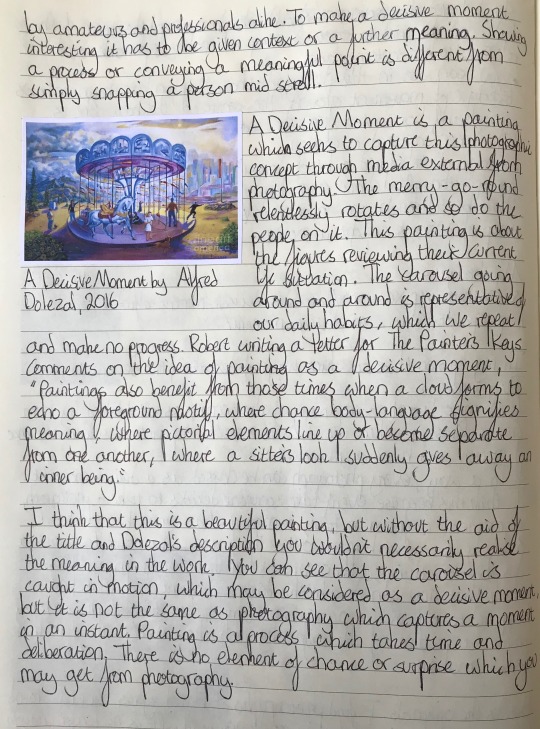 by amateurs and professionals alike. To make a decisive moment
interesting it has to be given context or a further meaning. Showing
a process or conveying a meaningful point is different from
simply snapping a person mid stroll.
A Decisive Moment is a painting
which seeks to capture this photographic
concept through media external from
photography. The merry-go-round
relentlessly rotates and so do the
people on it. This painting is about
the figures reviewing their current
life situation. The carousel going
around and around is representative of
our daily habits, which we repeat
A Decisive Moment by Alfred
Dolezal, 2016
and make no progress. Robert writing a letter for The Painters Keys
comments on the idea of painting as a decisive moment,
"Paintings also benefit from those times when a cloud forms to
echo a foreground motif, where chance body-language signifies
meaning, where pictorial elements line up or become separate
from one another, where a sitters look suddenly gives away an
inner being."
I think that this is a beautiful painting, but without the aid of
the title and Dolezal's description you wouldn't necessarily realise
the meaning in the work. You can see that the carousel is
caught in motion, which may be considered as a decisive moment,
but it is not the same as photography which captures a moment
in an instant. Painting is a process which takes time and
deliberation. There is no element of chance or surprise which you
may get from photography.